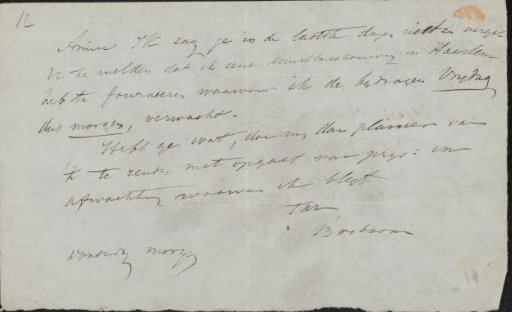 12
Amice Ik zag je in de laatste dagen niet en
U te melden dat ik eene kunstbeschouwing in Haarlem
heb te fourneeren waarvoor ik de bijdragen Vrijdag
dus morgen, verwacht.
Hebt ge wat, doe my dan plaisier van
't te zenden met opgaaf van prys: in
afwachting waarvan ik blijf
Bosboom
Donderdag morgen